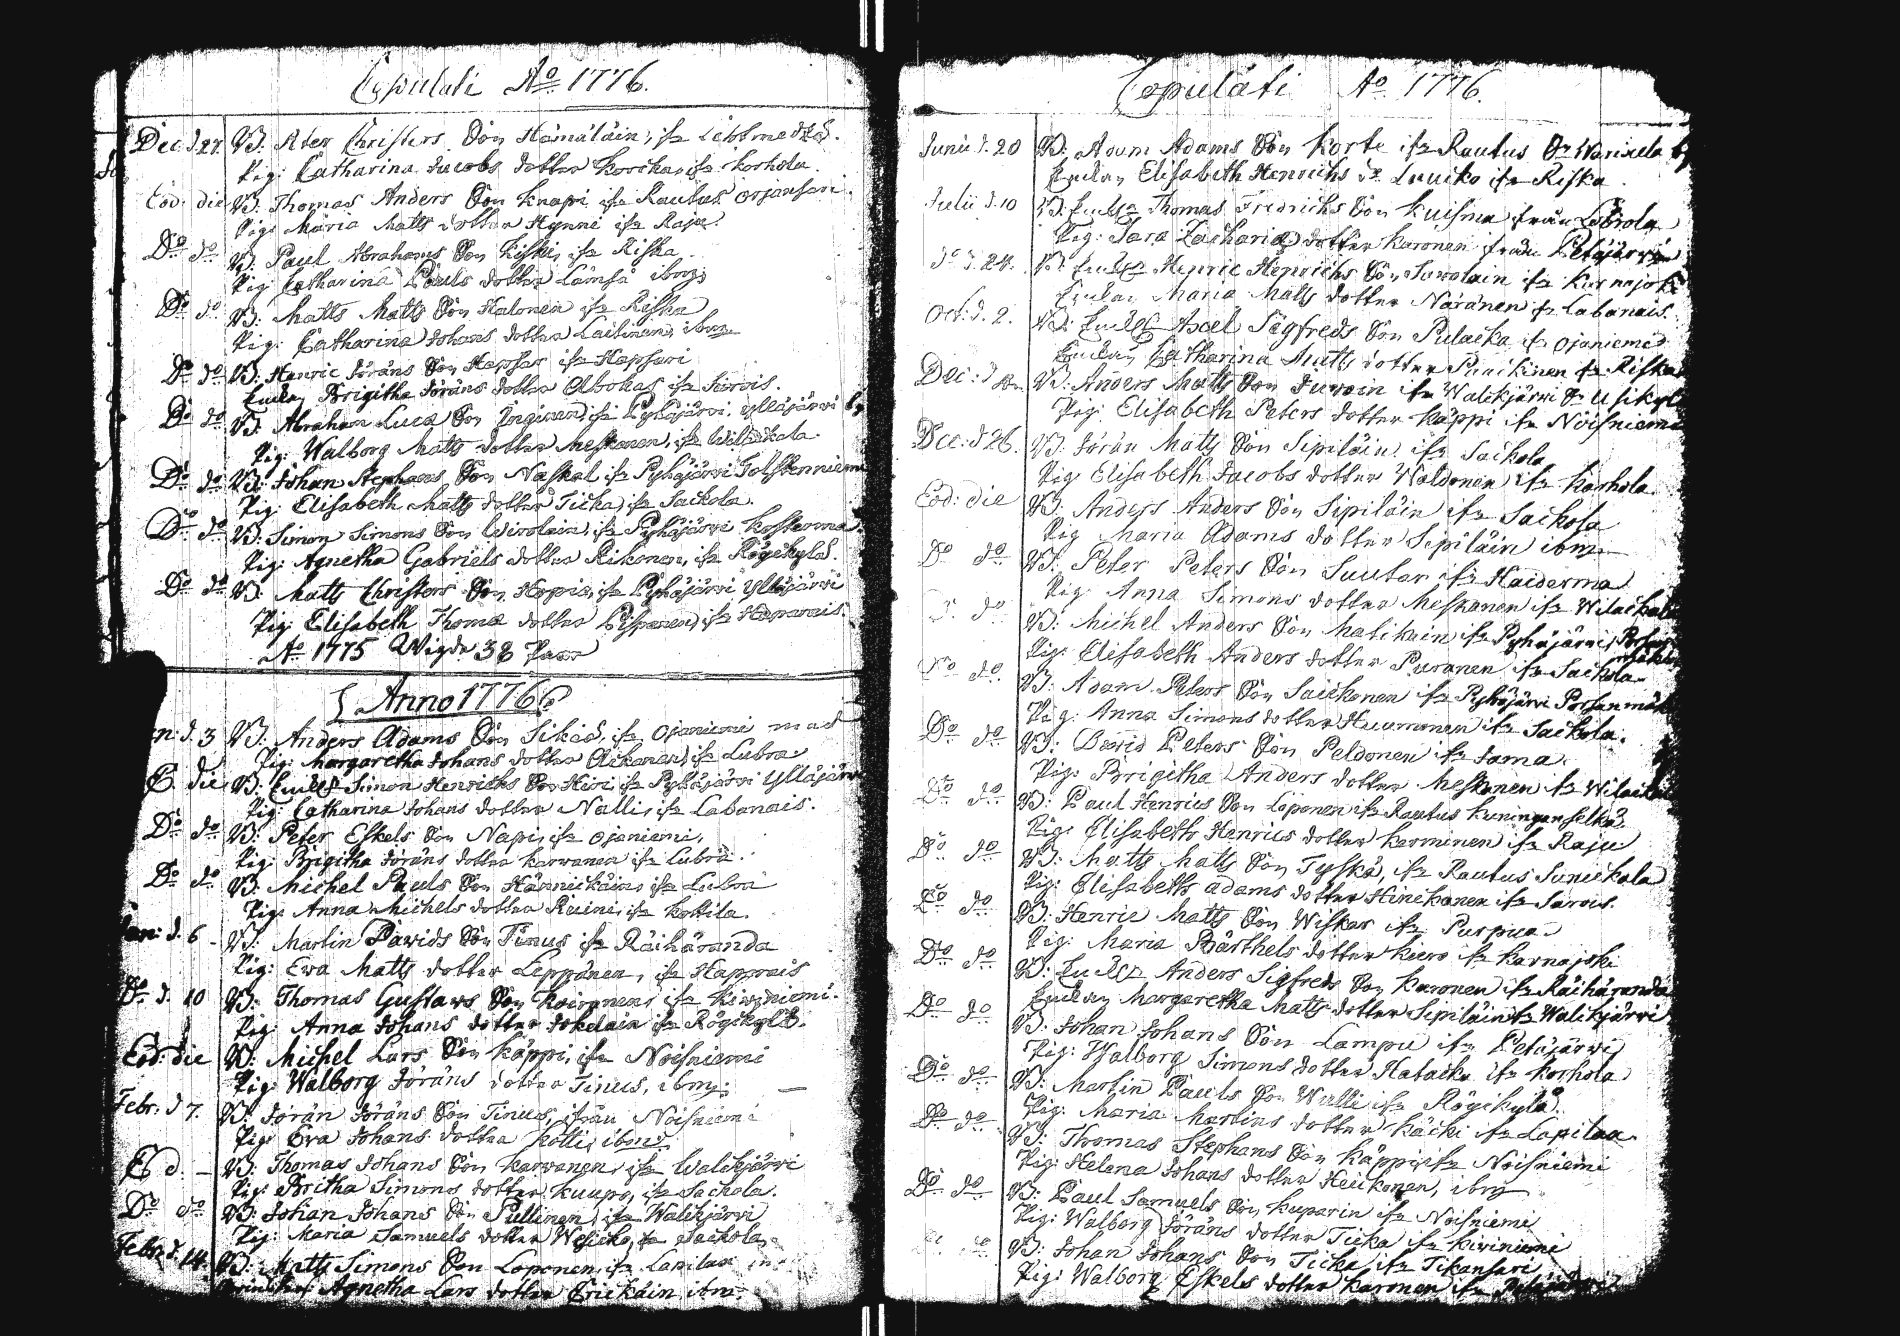 Copulati Aº 1776.
Dec: d. 27. B: Peter Christers Son Hämäläin, ifr
Pig: Catharina Jacobs dotter Korcka ifr Korhola
Eod: die B: Thomas Anders Son Knapi ifr Rautus Orjansari.
Pig: Maria Matts dotter Hynni ifr Raju.
Dº dº B: Paul Abrahams Son Kiski, ifr Riska.
Pig: Catharina Pauls dotter Lämsä ibm;
Dº dº B: Matts Matts Son Halonen ifr Riska
Pig: Catharina Johans dotter Laitinen, ibm
Dº dº B: Henric Jöräns Son Hapsar ifr Hapsari
Enckan Brigitha Jöräns dotter ifr Jervis.
Dº dº B: Abraham Luca Son Inginen, ifr Pyhäjärvi, Ylläjärvi by
Pig: Walborg Matts dotter Meskanen, ifr Wilackala.
Dº dº B: Johan Stephans Son Naskal ifr Pyhäjärvi
Pig: Elisabeth Matts dotter Ticka, ifr Sackola.
Dº dº B: Simon Simons Son Wiwolain, ifr Pyhäjärvi
Pig: Agnetha Gabriels dotter Rikonen, ifr Rögikylä.
Dº dº B: Matts Christers Son Hopia, ifr Pyhäjärvi Ylläjärvi
Pig: Elisabeth Thomæ dotter ifr Haparais.
Aº 1775 Wigde 38 Paar
Anno 1776
d. 3 B: Anders Adams Son ifr Ojaniemi med
Pig: Margaretha Johans dotter ifr Lubra
E. die B: Enckl: Simon Henrichs Son Hiri, ifr Pyhäjärvi Ylläjärvi
Pig: Catharina Johans dotter Nalli, ifr Labanais.
Dº dº B: Peter Eskels Son Napi, ifr Ojaniemi,
Pig: Brigitha Jöräns dotter Karwanen ifr Lubra.
Dº dº B: Michel Pauls Son Hännickäin, ifr Lubra
Pig: Anna Michels dotter Raine, ifr Kottila.
Jan: d. 6 B: Martin Davids Son Tinus ifr Räihäranda
Pig: Ewa Matts dotter Leppänen, ifr Happrais
Dº d. 10 B: Thomas Gustavs Son Koironen, ifr Kiwiniemi.
Pig: Anna Johans dotter Jokelain ifr Rögikylä.
Eod: die B: Michel Lars Son Käppi, ifr Noisniemi
Pig: Walborg Jöräns dotter Tinus, ibm;
Febr: d 7. B: Jörän Jöräns Son Tinus, ifrån Noisniemi
Pig: Eva Johans dotter Kolli, ibm:
E d. B: Thomas Johans Son Karwanen, ifr Walkjärvi
Pig: Britha Simons dotter Kuupo, ifr Sackola.
Dº dº B: Johan Johans Son Pullinen, ifr Walkjärvi
Pig: Maria Samuels dotter ifr Sackola,
Febr: d. 14. B: Matts Simons Son Loponen, ifr Lapilax
Agnetha Lars dotter Erickäin ibm:
Copulati Aº 1776.
Junii d. 20 B: Adam Adams Son Korte ifr Rautus
Enckan Elisabeth Henrichs dr Laucko ifr Riska.
Julii d. 10 B: Encklg Thomas Fredrichs Son Kuisma från
Pig: Sara Zachariæ dotter Karonen från Petäjärvi
dº d. 24. B: Encklg Henric Henrichs Son Suwolain ifr
Enckan Maria Matts dotter Näränen ifr Labanais.
Oct: d. 2. B: Encklg Axel Sigfreds Son Pulacka ifr Ojaniemi
Enckan Catharina Matts dotter ifr Riska
Dec: d B: Anders Matts Son Juvoin ifr Walkjärvi
Pig: Elisabeth Peters dotter Käppi ifr Noisniemi
Dec: d 26. B: Jörän Matts Son Sipiläin ifr Sackola
Pig Elisabeth Jacobs dotter Waldonen ifr Korhola.
Eod: die B: Anders Anders Son Sipiläin ifr Sackola
Pig Maria Adams dotter Sipiläin ibm
Dº dº B: Peter Peters Son Suutar ifr Haiderma
Pig: Anna Simons dotter Meskanen ifr Wilackala
dº B: Michel Anders Son Matikain ifr Pyhäjärvi
Pig: Elisabeth Anders dotter Puranen ifr Sackola.
Dº dº B: Adam Peters Son Saickonen ifr Pyhäjärvi
Pig: Anna Simons dotter Huumonen ifr Sackola.
Dº dº B: David Peters Son Peldonen ifr Sama.
Pig: Brigitha Anders dotter Meskanen ifr
Dº dº B: Paul Henrics Son Loponen ifr Rautus
Pig: Elisabeth Henrics dotter Karminen ifr Raju
Dº dº B: Matts Matts Son Tyskä, ifr Rautus
Pig: Elisabeth Adams dotter Hinckanen ifr
Dº dº B: Henric Matts Son Wiskar ifr Purpua
Pig: Maria Bärthels dotter Kiero ifr
Dº dº B: Encklg Anders Sigfreds Son Karonen ifr Räihäranda
Enckan Margaretha Matts dotter Sipiläin ifr Walkjärvi
Dº dº B: Johan Johans Son Lampu ifr Petäjärvi
Pig: Walborg Simons dotter Hatacka ifr Korhola
Dº dº B: Martin Pauls Son Walli ifr Rögikylä.
Pig: Maria Martins dotter Käcki ifr Lapilax.
Dº dº B: Thomas Stephans Son Käppi, ifr Noisniemi
Pig: Helena Johans dotter Heickonen, ibm
Dº dº B: Paul Samuels Son Kuparin ifr Noisniemi
Pig: Walborg Jöräns dotter Ticka ifr Kiwiniemi
B: Johan Johans Son Ticka ifr Tikansari
Pig: Walborg Eskels dotter Karonen ifr